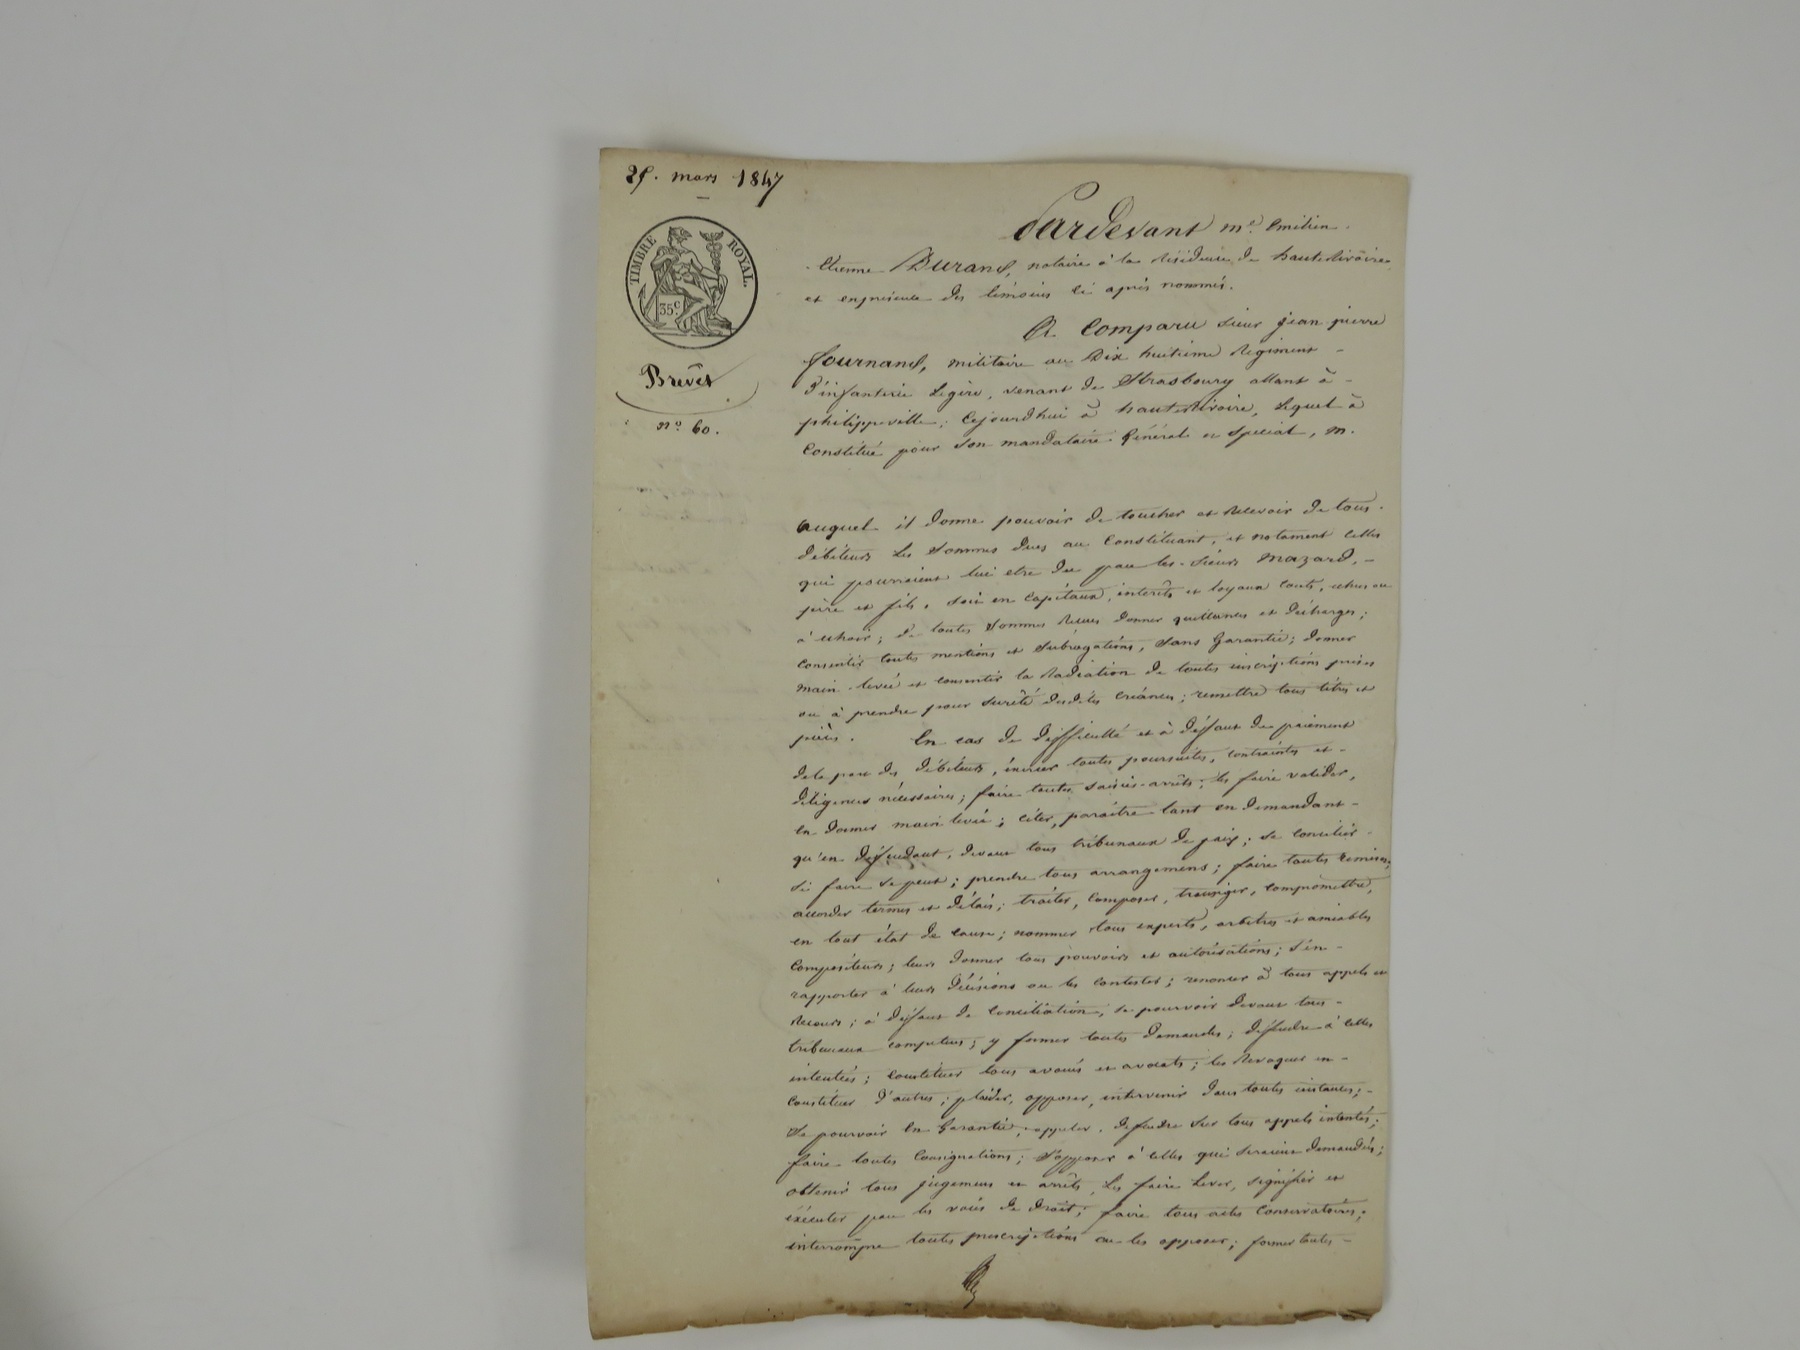 25. mars 1847
TIMBRE ROYAL.
35.c
Brevet
n.o 60.
Pardevant m.e Emilien
Etienne Durand, notaire à la Résidence de hauteRivoire
et enprésence des témoins ci après nommés.
A Comparu sieur jean pierre
fournand, militaire au Dix huitième Régiment
D'infanterie Légère, venant de Strasbourg allant à
philippeville; Cejourdhui à hauteRivoire, Lequel à
Constitué pour son mandataire Général et spécial, M.
auquel il donne pouvoir de toucher et Recevoir de tous
débiteurs les Sommes dues au Constituant, et notament celles
qui pourraient lui etre du par les Sieurs Mazard,
père et fils, soit en Capitaux, interêts et loyaux couts, echus ou
à echoir; de toutes Sommes Reçues donner quittances et décharges;
Consentir toutes mentions et Subrogations, Sans Garantie; donner
main levée et consentir la Radiation de toutes inscriptions prises
ou à prendre pour sureté desdites créances; remettre tous titres et
pièces. En cas de difficulté et à deffaut de paiement
dela part des débiteurs, exercer toutes poursuites, contraintes et
diligences nécessaires; faire toutes saisies-arrêts; les faire valider,
en donner main levée; citer, paraitre tant en demandant
qu'en deffendant, devant tous tribunaux de paix; se concilier
si faire se peut; prendre tous arrangemens; faire toutes remises;
accorder termes et délais; traiter, Composer, transiger, compromettre,
en tout état de cause; nommer tous experts, arbitres et amiables
Compositeurs; leurs donner tous pouvoirs et autorisations; s'en
rapporter à leurs décisions ou les contester; renoncer à tous appels et
Recours; à deffaut de Conciliation, se pourvoir devant tous
tribunaux compétens; y former toutes Demandes; deffendre à celles
intentées; constituer tous avoués et avocats; les Revoquer en
Constituer d'autres; plaider, opposer, intervenir dans toutes instances;
Se pourvoir en Garantie, appeler, defendre sur tous appels intentés;
faire toutes Consignations; s'opposer à celles qui seraient demandées;
obtenir tous jugemens et arrêts, Les faire Lever, signifier et
éxécuter par les voies de Droit; faire tous actes Conservatoires;
interrompre toutes prescriptions ou les opposer; former toutes